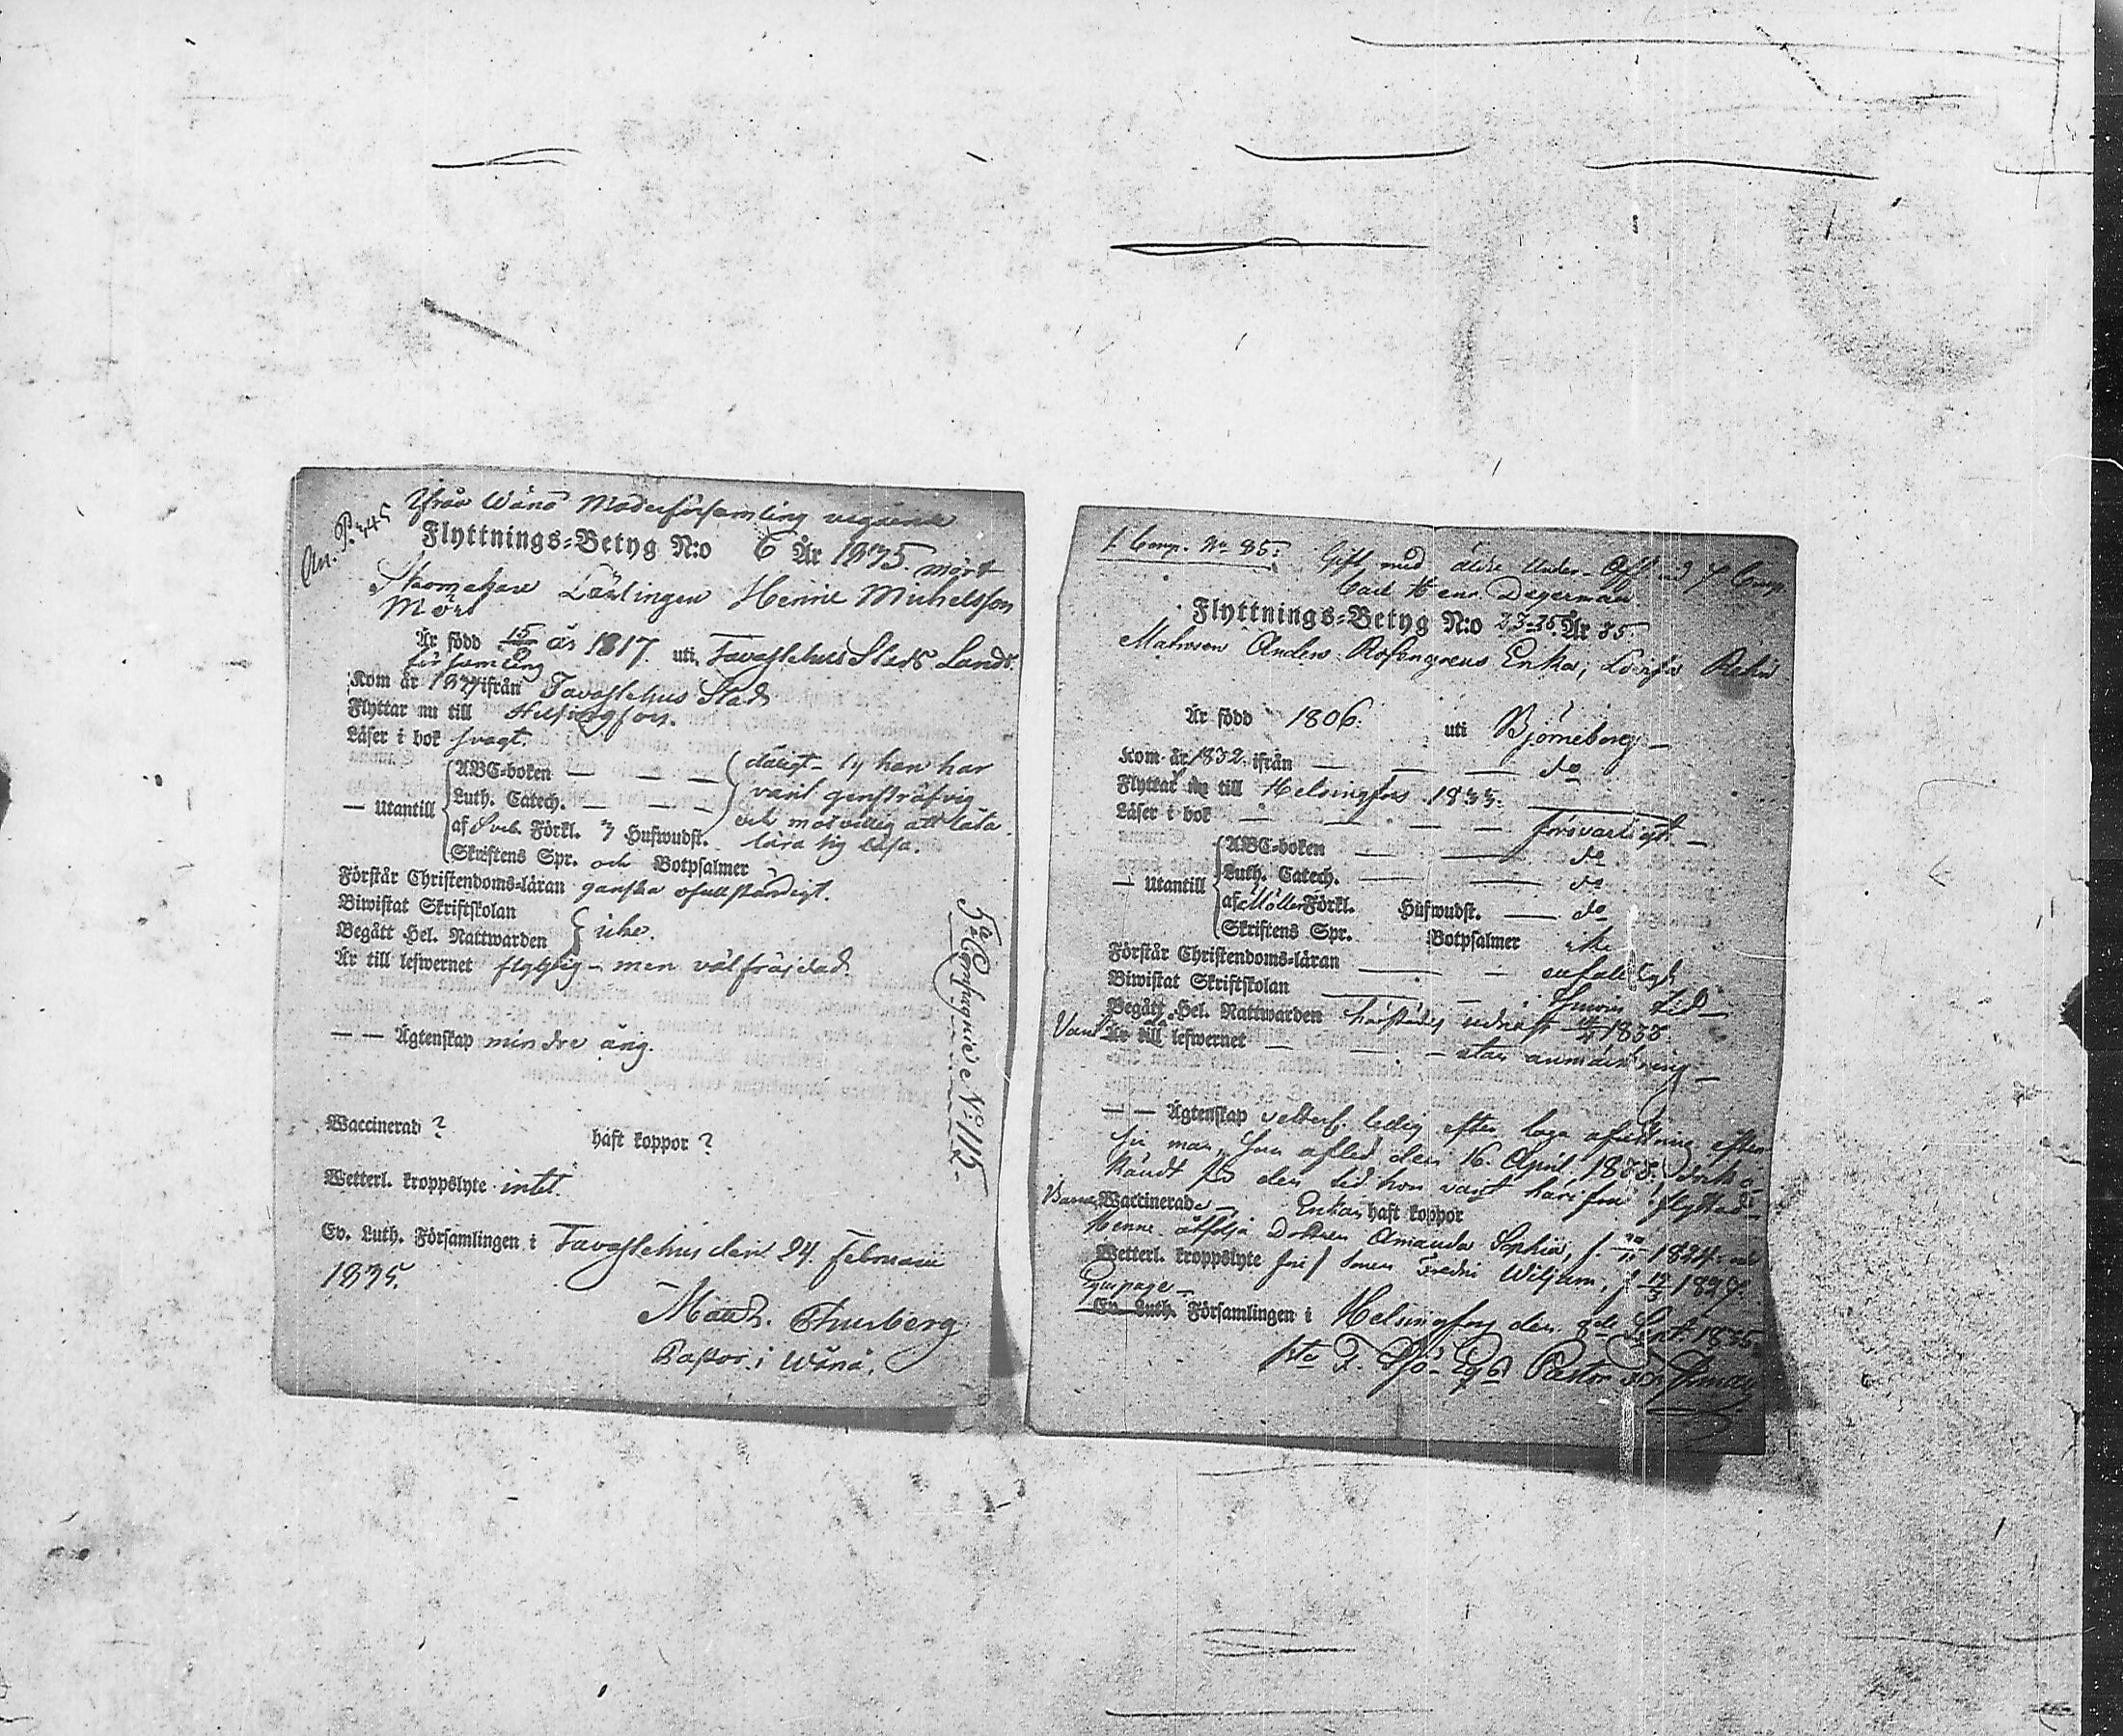 An. P. 345
Ifrån Wånå Moderförsamling utgående
Flyttnings-Betyg N:o 6 År 1835. Mört
Skomakare Lärlingen Henric Michelsson
Mört
Är född 15/8 år 1817. uti Tavastehus Stads Lands
församling
Kom år ifrån Tavastehus Stad
Flyttar nu till Helsingfors.
Läser i bok svagt.
— Utantill
ABC-boken — — —
Luth. Catech. — — —
af Sveb. Förkl. Hufwudst.
Skriftens Spr. och Botpsalmer
dåligt ty han har
varit gensträfvig
och motvillig att låta
lära sig läsa.
Förstår Christendoms-läran ganska ofullständigt.
Biwistat Skriftskolan
Begått Hel. Nattwarden } icke.
Är till lefwernet men välfräjdad.
— — Ägtenskap minderårig.
Waccinerad ? haft koppor ?
Wetterl. kroppslyte intet.
Ev. Luth. Församlingen i Tavastehus den 24. Februarii
1835.
Thurberg
Pastor i Wånå.
Compagnie N:o 115.
1. Comp. No 85. Gift med äldre Under-Off. vid 7 Comp.
Carl Henr. Degerman
Flyttnings-Betyg N:o 23-35. År 35.
Matrosen Anders Rosengrens Enka, Lovisa
Är född 1806. uti Björneborg —
Kom år 1832. ifrån — — — do
Flyttar till Helsingfors 1833.
Läser i bok — — — försvarligt. —
— Utantill
ABC-boken — — do
Luth. Catech. — — do
af Möllers Förkl. Hufwudst. — do
Skriftens Spr. Botpsalmer icke
Förstår Christendoms-läran — — enfaldigt
Biwistat Skriftskolan — — sin tid —
Begått Hel. Nattwarden härstädes sednast 1835.
Är till lefwernet — — utan anmärkning —
— — Ägtenskap ledig efter laga afvittring efter
sin man, som afled den 16. April 1833.
den tid hon varit härifrån flyttad
Barnen Waccinerade — Enkan haft koppor
Henne åtfölja Dottren Amanda Sophia, f. 1824. och
Wetterl. kroppslyte sonen Fredric Wiljam, f. 1829.
Equipage —
Ev. Luth. Församlingen i Helsingfors den 8de Sept. 1835.
Pastor